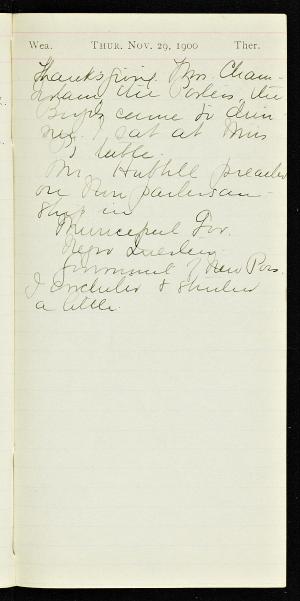 Wea. THUR. NOV. 29, 1900 Ther.
Thanksgiving. Mrs. Cham-
the Porters, the
came to din
ner. I sat at Mrs
table.
Mr. Hubbell preached
on Non partisan-
ship in
Municipal Gov.
Negro Question
Government of New Pos.
I & studied
a little.